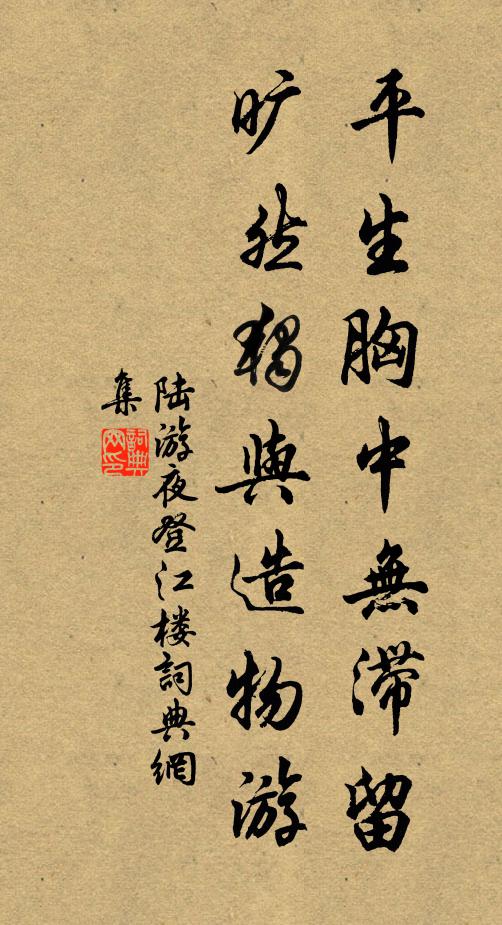 平生胸中無滞留
旷然独與造物游
陆游夜登江楼詞典網
集
詞典
网印